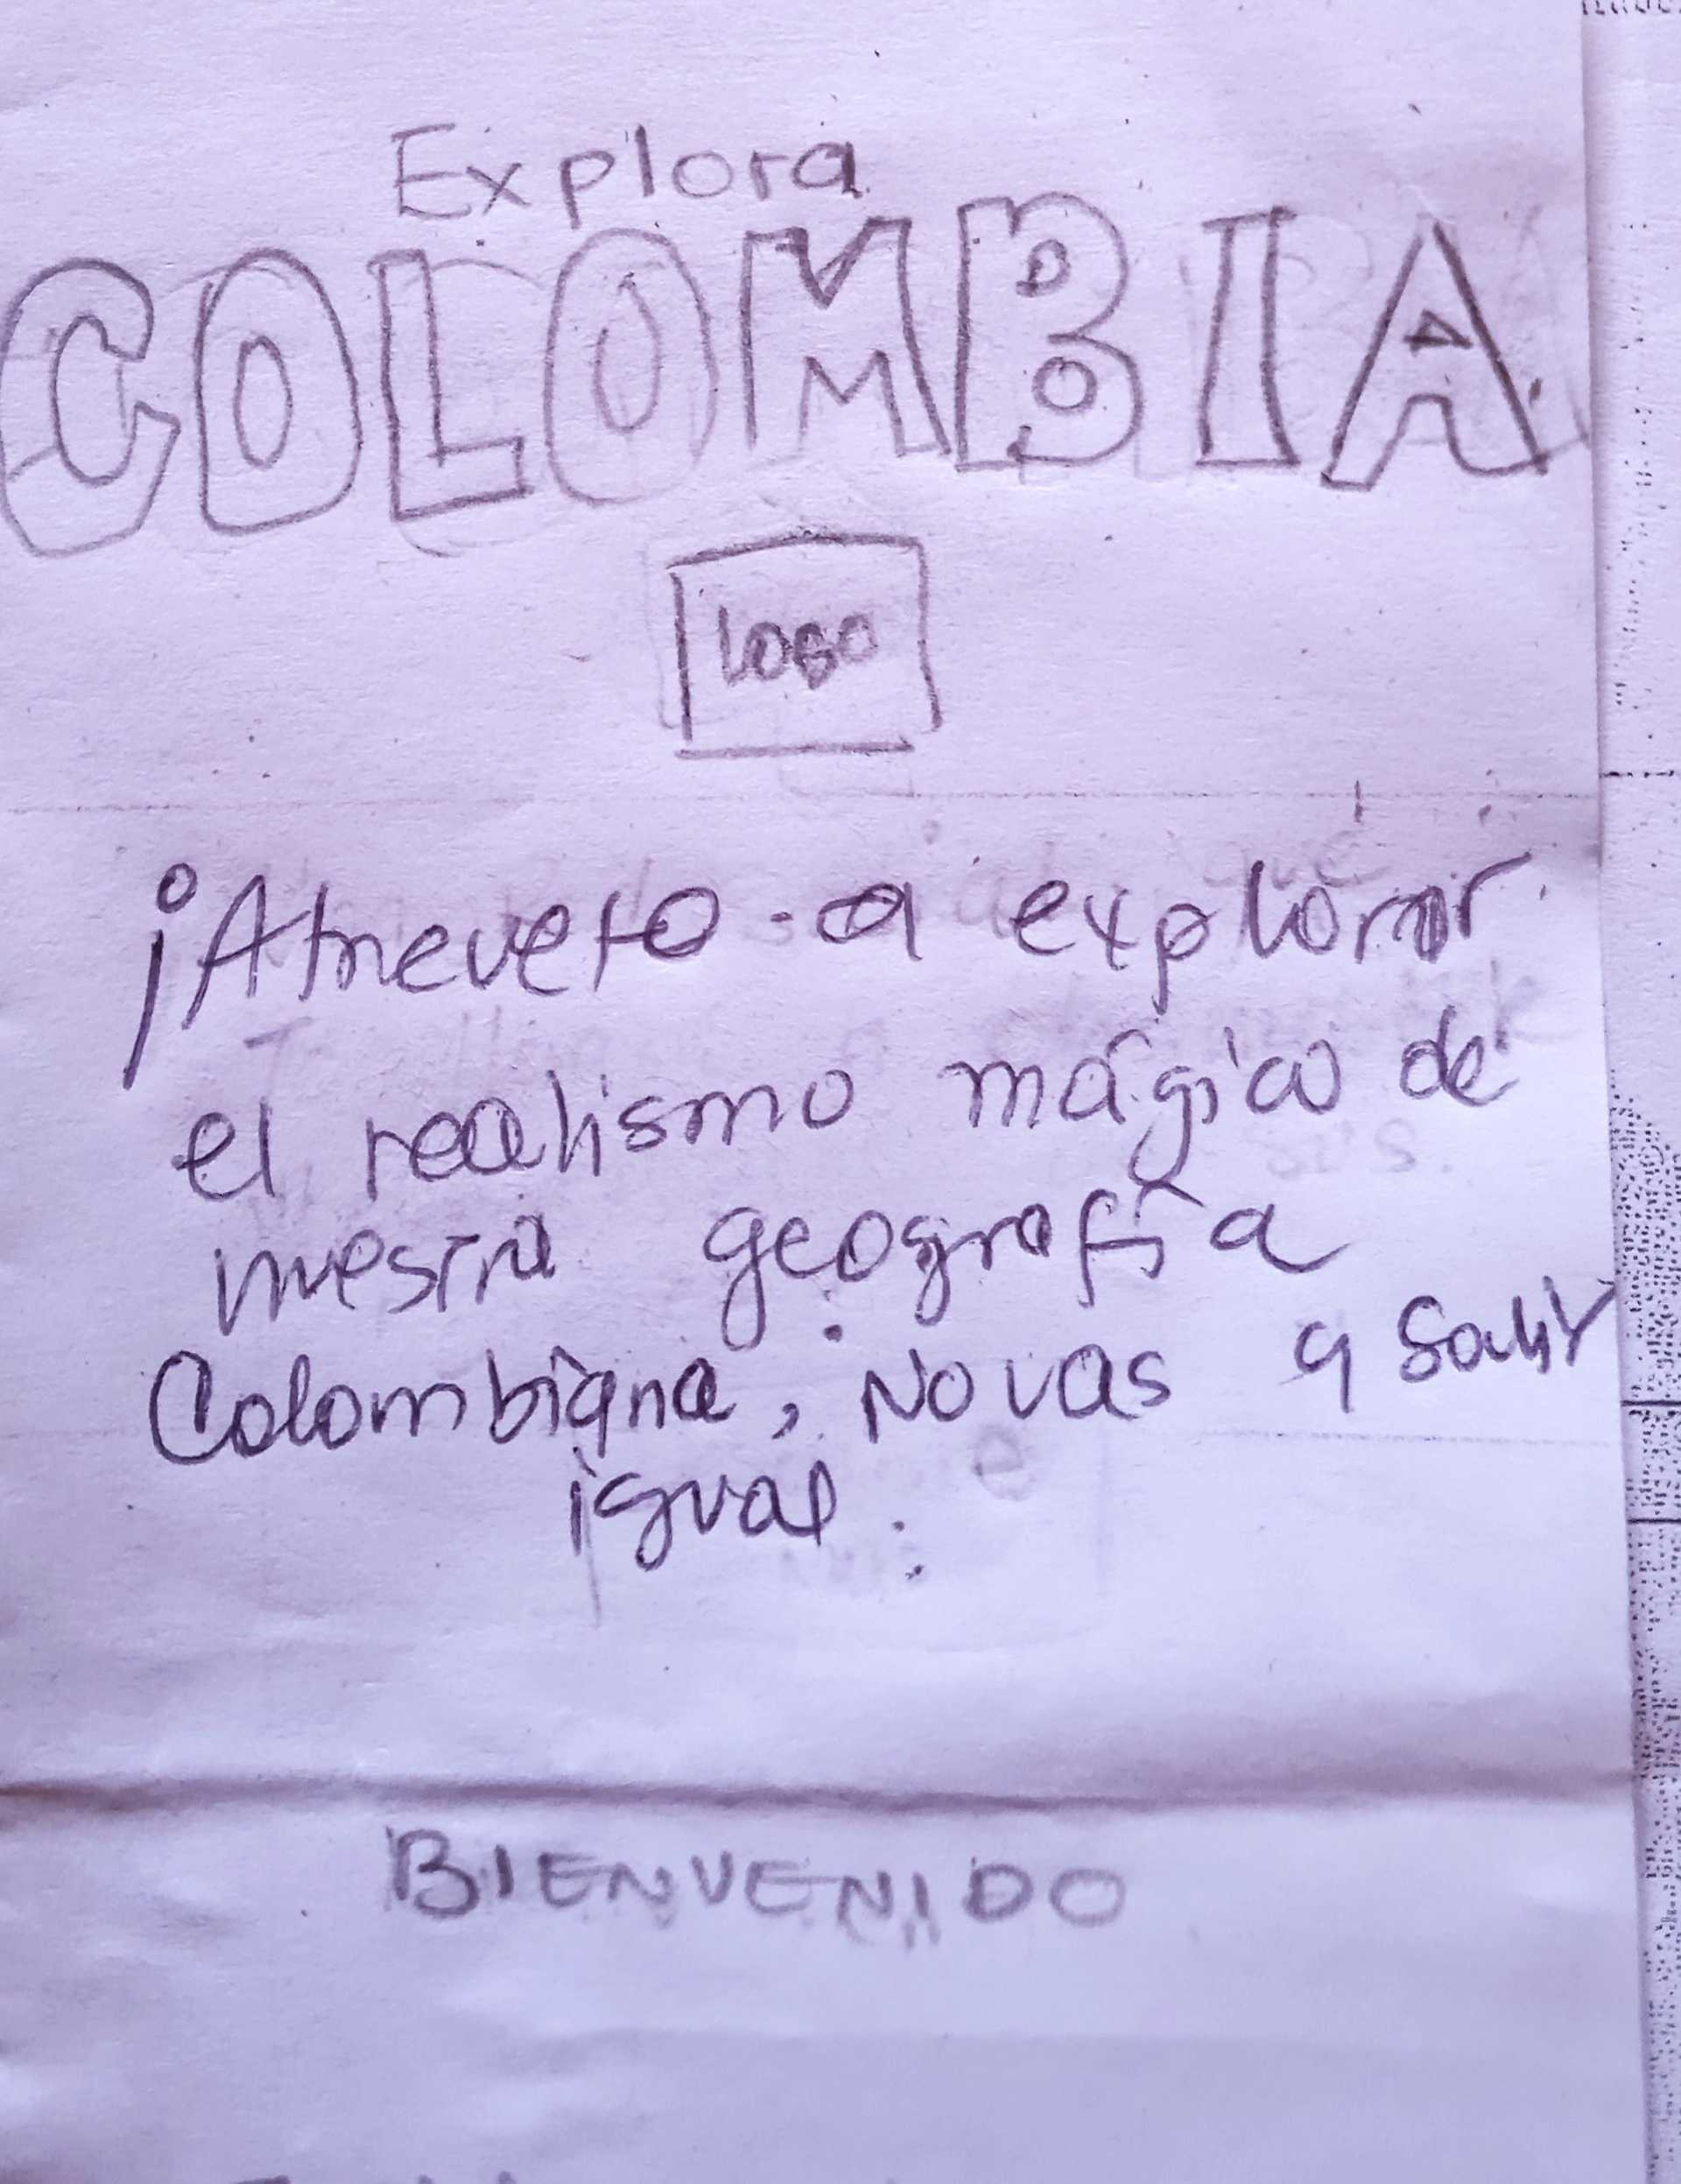 Explora
COLOMBIA
LOGO
¡Atrevete a explorar
el realismo mágico de
nuestra geografía
Colombiana, No vas a salir
igual.
BIENVENIDO